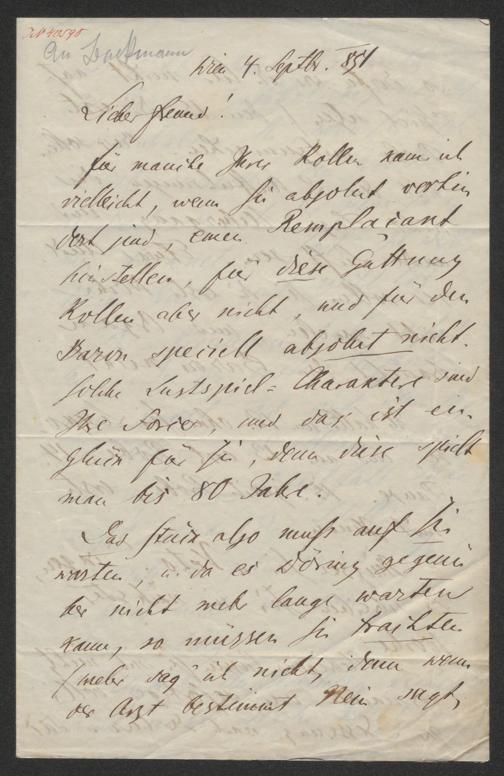 An Laufmann
Wien 4. Septbr. 851
Lieber Freund!
Für manche Ihrer Rollen kann ich
vielleicht, wenn Sie absolut verhin
dert sind, einen Remplaçant
hinstellen, für diese Gattung
Rollen aber nicht, und für den
Baron speciell absolut nicht.
Solche Lustspiel=Charaktere sind
Ihre Force, und das ist ein
Glück für Sie, denn diese spielt
man bis 80 Jahre.
Das Stück also muß auf Sie
warten, u. da es Döring gegenü
ber nicht mehr lange warten
kann, so müssen Sie trachten
(mehr sag' ich nicht, denn wenn
der Arzt bestimmt Nein sagt,